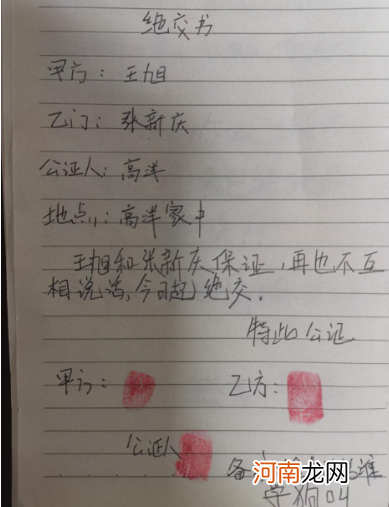 绝交书
甲方：王旭
乙方：张新庆
公证人：高洋
地点：高洋家中
王旭和张新庆保证，再也不互
相说话，今日起绝交。
特此公证
甲方： 乙方：
公证人
备 准
济南龙网
04